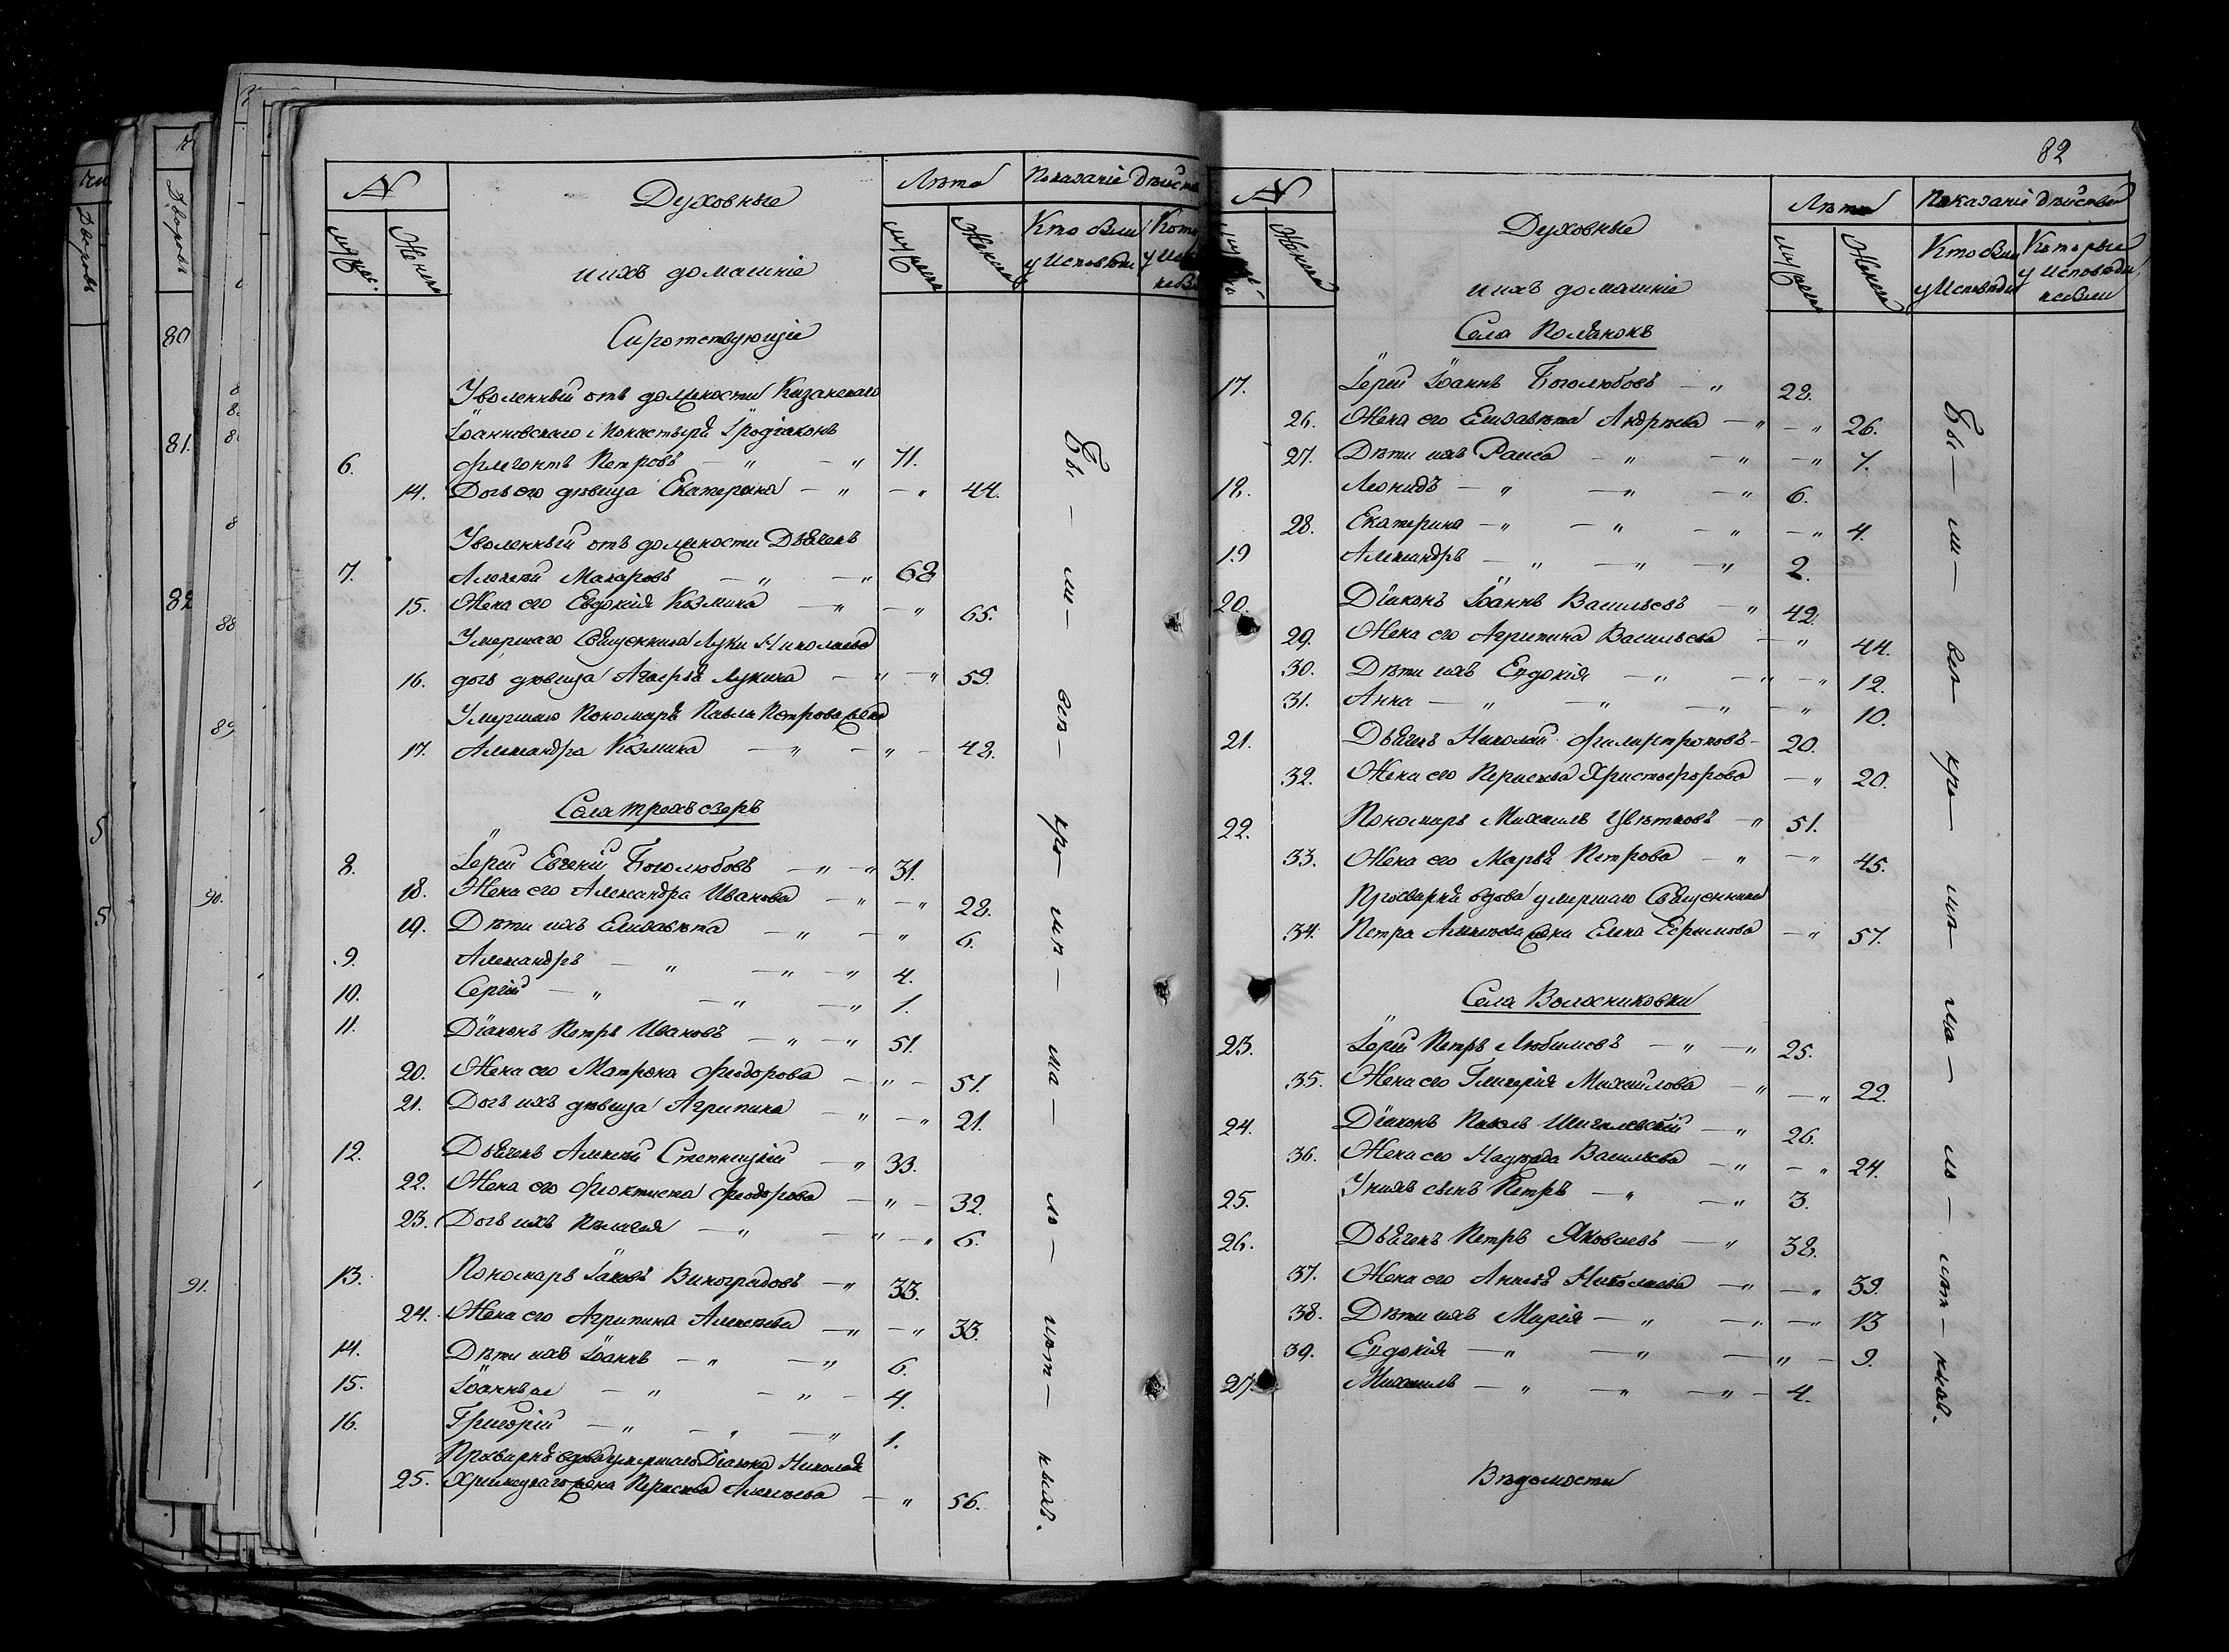 №
Духовные
и ихъ домашніе
Лѣта
Показаніе дѣйств
Мужес.
Женска
Мужеска
Женска
Кто были у Исповѣди
Сиротствующіе
Уволенный отъ должности Казанскаго
Іоанновскаго Монастыря Іродіаконъ
6. Флегонтъ Петровъ — „ — „ 71.
14. Дочь его дѣвица Екатерина — „ — „ 44.
Уволенный отъ должности Дьячекъ
7. Алексѣй Макаровъ — „ — „ 68
15. Жена его Евдокія Козмина — „ — „ 65.
Умершаго Священника Луки Николаева
16. дочь дѣвица Лукина — „ — „ 59.
Умершаго Пономаря Павла Петрова жена
17. Александра Козмина — „ — „ — 42.
Села трехъ озеръ
8. Іерей Евгеній Боголюбовъ — „ — „ 31.
18. Жена его Александра Иванова — „ — „ 28.
19. Дѣти ихъ Елизавѣта — „ — „ 6.
9. Александръ — „ — „ — „ 4.
10. Сергій — „ — „ — „ 1.
11. Діаконъ Петръ Ивановъ — „ — „ 51.
20. Жена его Матрона Феодорова — „ — 51.
21. Дочь ихъ дѣвица Агрипина — „ — „ 21.
12. Дьячекъ Алексѣй Степницкій — „ 33.
22. Жена его Феоктиста Феодорова — „ — 32.
23. Дочь ихъ Пелагея — „ — „ — „ 6.
13. Пономарь Іаковъ Виноградовъ — „ 33.
24. Жена его Агрипина Алексѣева — „ — „ 33.
14. Дѣти ихъ Іоаннъ — „ — „ 6.
15. Іоаннъ же — „ — „ — 4.
16. Григорій — „ — „ — „ 1.
вдова умершаго Діакона Николая
25. жена Парасковья Алексѣева — „ 56.
Бы — ли — всѣ — кро — мѣ — ма — ло — лѣт — ныхъ.
82
№
Мужес
Женска
Духовные
и ихъ домашніе
Лѣта
Мужеска
Женска
Показаніе дѣйства
Кто были у Исповѣди
Которые у Исповѣди небыли
Села Полянокъ
17. Іерей Іоаннъ Боголюбовъ — „ 28.
26. Жена его Елизавѣта Андрѣева — „ — „ 26.
27. Дѣти ихъ Раиса — „ — „ — „ 7.
18. Леонидъ — „ — „ — „ 6.
28. Екатерина — „ — „ — „ — „ 4.
19 Александръ — „ — „ — „ 2.
20. Діаконъ Іоаннъ Васильевъ — „ 42.
29. Жена его Агрипина Васильева — „ 44.
30. Дѣти ихъ Евдокія — „ — „ — „ 12.
31. Анна — „ — „ — „ — „ 10.
21. Дьячекъ Николай 20.
32. Жена его Христофорова — „ 20.
22. Пономарь Михаилъ Цвѣтковъ — „ 51.
33. Жена его Марья Петрова — „ — „ 45.
вдова умершаго Священника
34. Петра Алексѣева жена Елена Ефимова — „ 57.
Села Волосниковки
23. Іерей Петръ Любимовъ — „ — „ 25.
35. Жена его Гликерія Михайлова — „ — „ 22.
24. Діаконъ Павелъ Шигалевскій — „ 26.
36. Жена его Надежда Васильева — „ — „ 24.
25. У нихъ сынъ Петръ — „ — „ 3.
26. Дьячекъ Петръ Яковлевъ — „ 38.
37. Жена его Анисья Николаева — „ — „ 39.
38. Дѣти ихъ Марія — „ — „ — „ 13
39. Евдокія — „ — „ — „ — 9.
27. Михаилъ — „ — „ — „ — 4.
Бы — ли — всѣ — кро — мѣ — ма — ло — лѣт — ныхъ.
Вѣдомости
80
81.
82
88
89
90.
91.
5
5